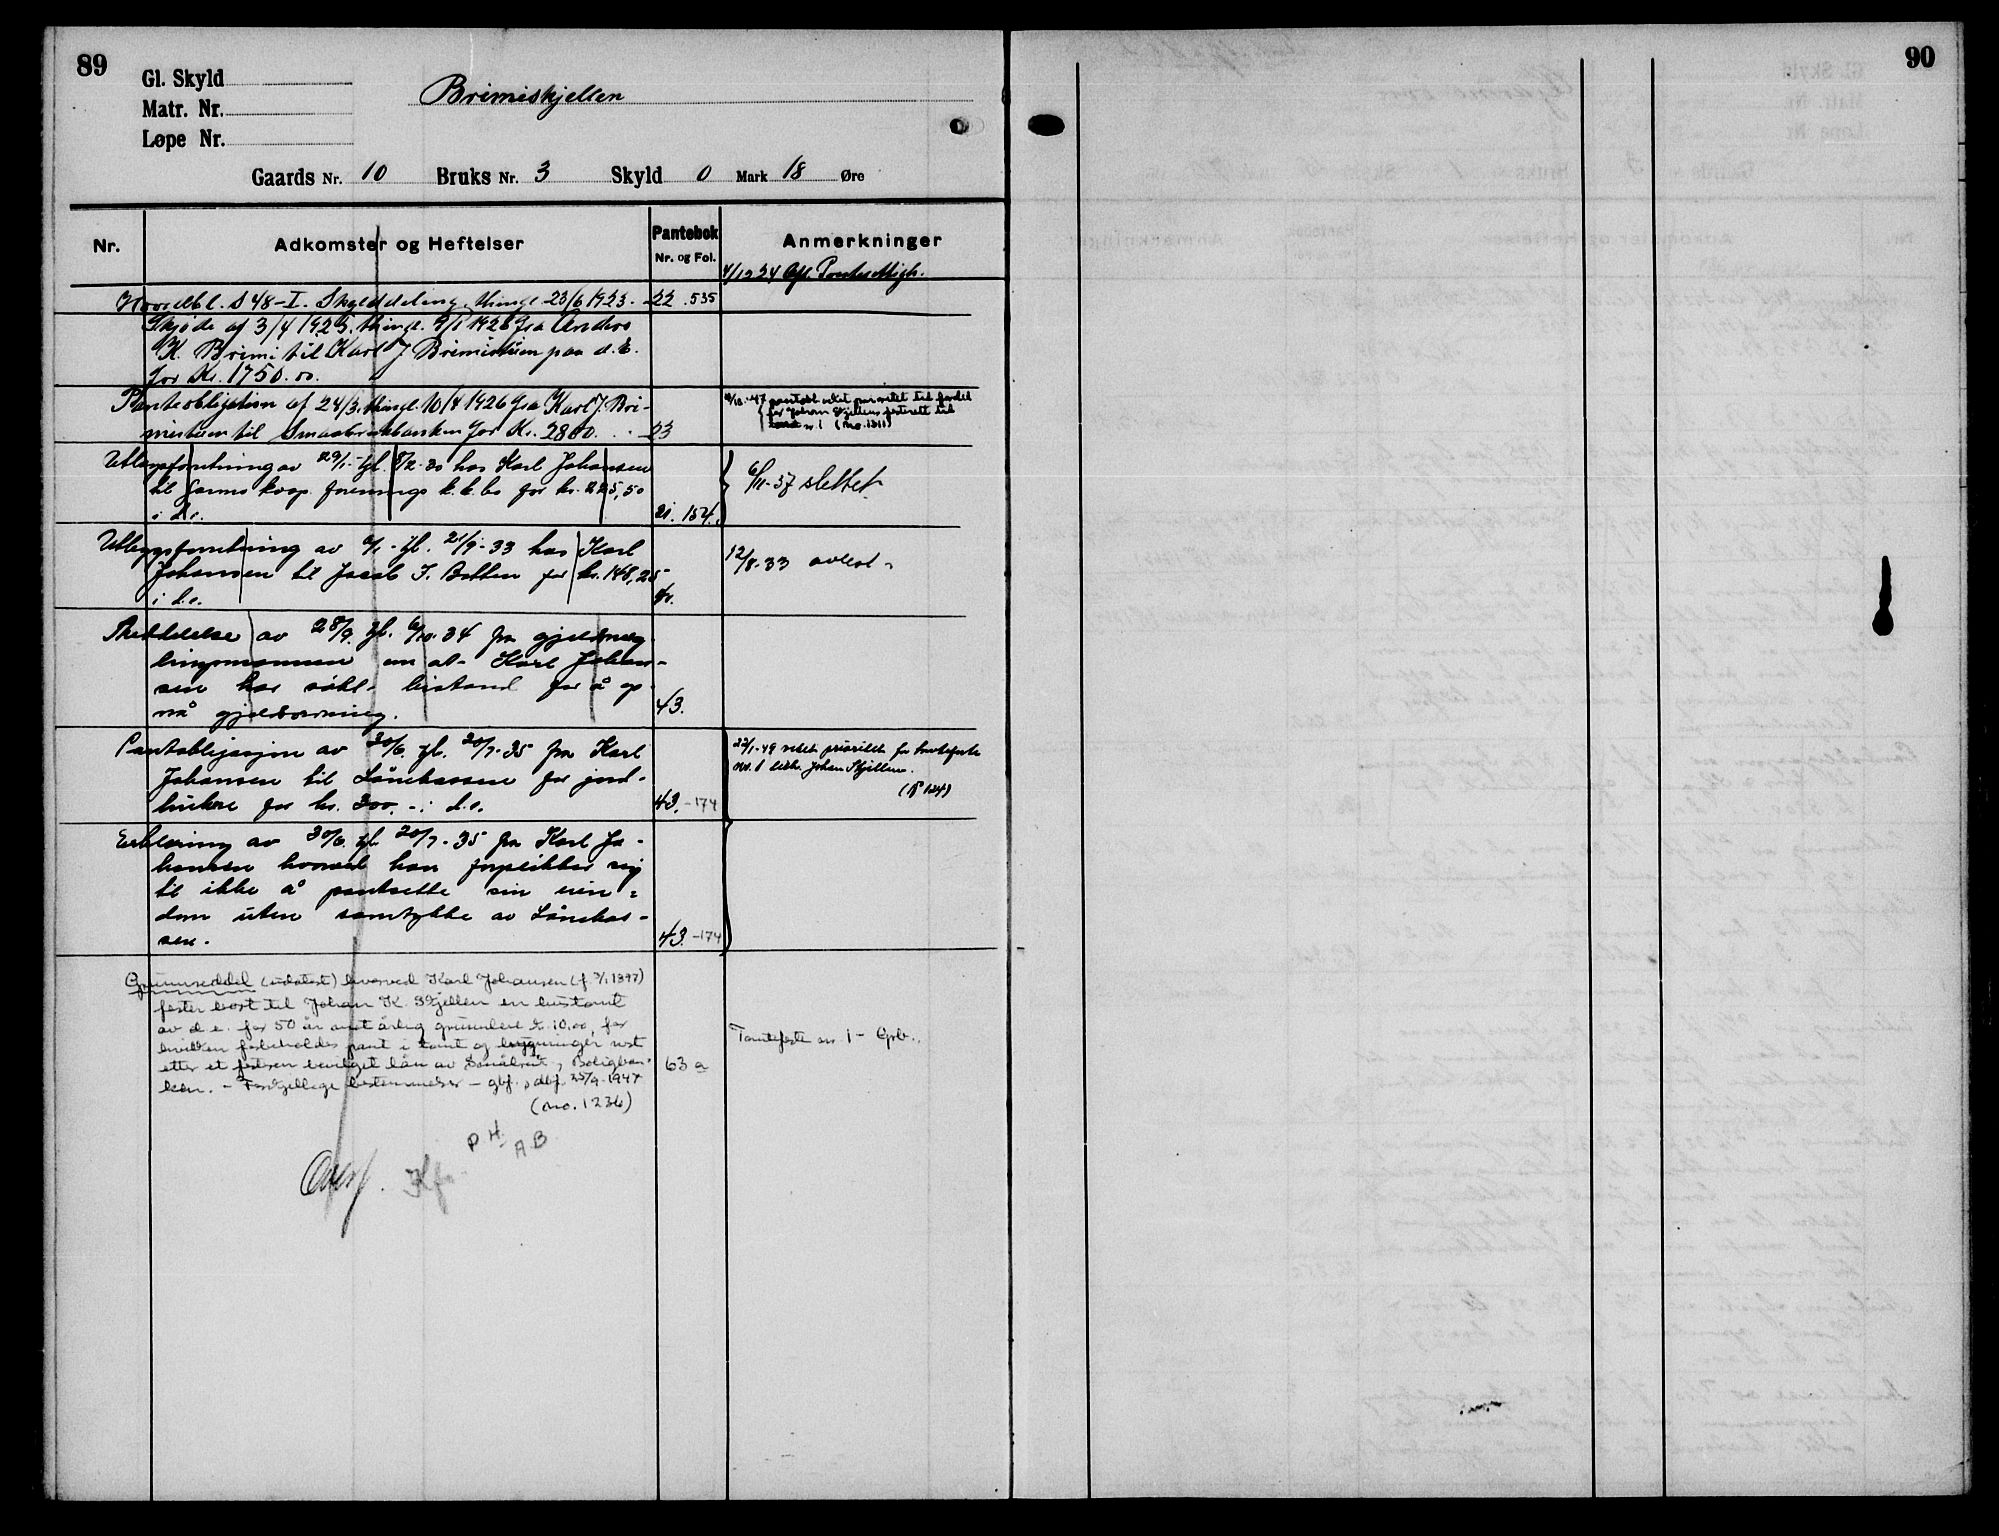 89
Gl. Skyld
Matr. Nr.
Løpe Nr.
Brimiskjellen
Gaards Nr. 10 Bruks Nr. 3 Skyld 0 Mark 18 Øre
Nr. Adkomster og Heftelser Pantebok Nr. og Fol. Anmerkninger
4/12 34
Hovedbl. S 48-I. Skylddeling, thingl 23/6 1923. 22. 535
Skjøde af 3/4 1925, thingl. 1926 fra Andro
K. Brimi til Karl J Brimistuen paa d.e.
for Kr. 1750.00.
Panteobligation af 24/3, thingl. 10/4 1926 fra Karl J. Bri-
mistuen til Smaabrukbanken for Kr. 2800. 23
47 pantobl veket prioritet til fordel
for Johan Skjellens festerett til
nr. 1 (no. 1311)
Utleggsforretning av 29/1 - tgl. 8/2-30 hos Karl Johansen
til koop. forenings k.k.bo for kr. 225,50
i d.e. 21. 154.
6/11-37 slettet
Utleggsforretning av tgl. 21/9-33 hos Karl
Johansen til Jacob I. Bakken for kr. 148,25
i d.e. 40.
12/8-33 avlest
Meddelelse av 28/9. tgl. 6/10-34 fra gjeldsmeg-
lingsmannen om at Karl Johan-
sen har søkt bistand for å op-
nå gjeldsordning. 43.
Pantobligasjon av 30/6. tgl. 20/7-35 fra Karl
Johansen til Lånekassen for jord-
brukere for kr. 300.- i d.e. 43.-174
22/1-49 veket prioritet for tomtefeste
nr. 1 tilh. Johan Skjellen.
(№ 124)
Erklæring av 30/6. tgl 20/7-35 fra Karl Jo-
hansen hvorved han forplikter sig
til ikke å pantsette sin eien=
dom uten samtykke av Lånekas-
sen. 43.-174
Grunnseddel (udatert) hvorved Karl Johansen (f. 7/1 1897)
fester bort til Johan K. Skjellen en hustomt
av d.e. for 50 år mot årlig grunnleie kr 10,00, for
hvilken forbeholdes pant i tomt og bygninger nest
etter et festeren bevilget lån av Småbruk, Boligban-
ken. - Forskjellige bestemmelser - gbf., dbf. 25/9-1947
(no. 1236)
63 a
Tomtefeste nr. 1 - Grb.
P H.
A.B
Overf. Kfr
90